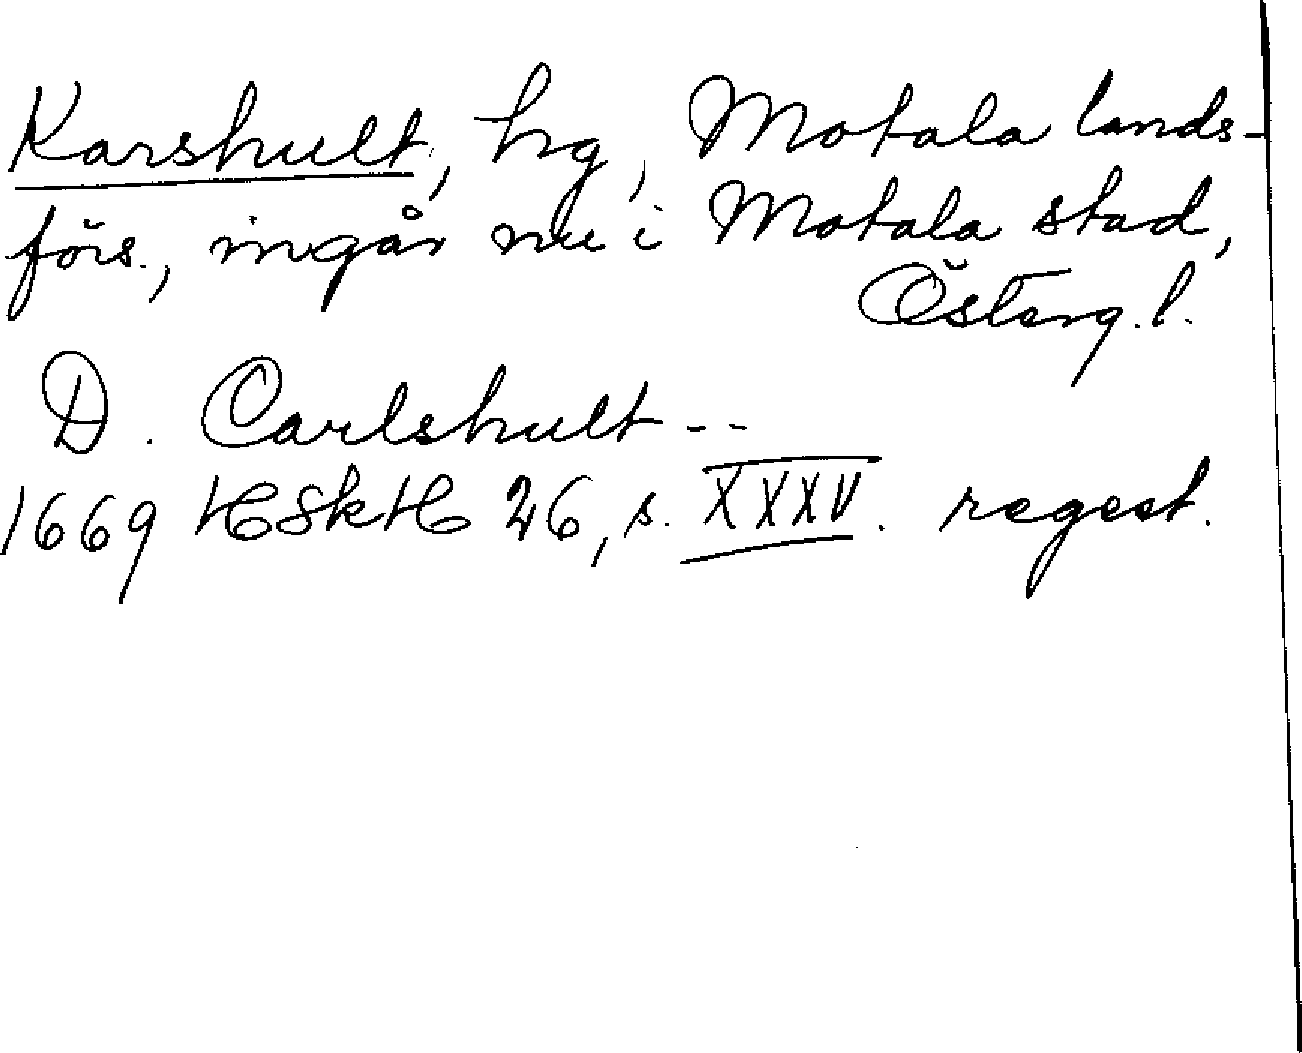 Karshult, hg, Motala lands-
förs., ingår nu i Motala stad,
Österg. l.
D. Carlshult --
1669 HSkH 26, s. XXXV. regest.